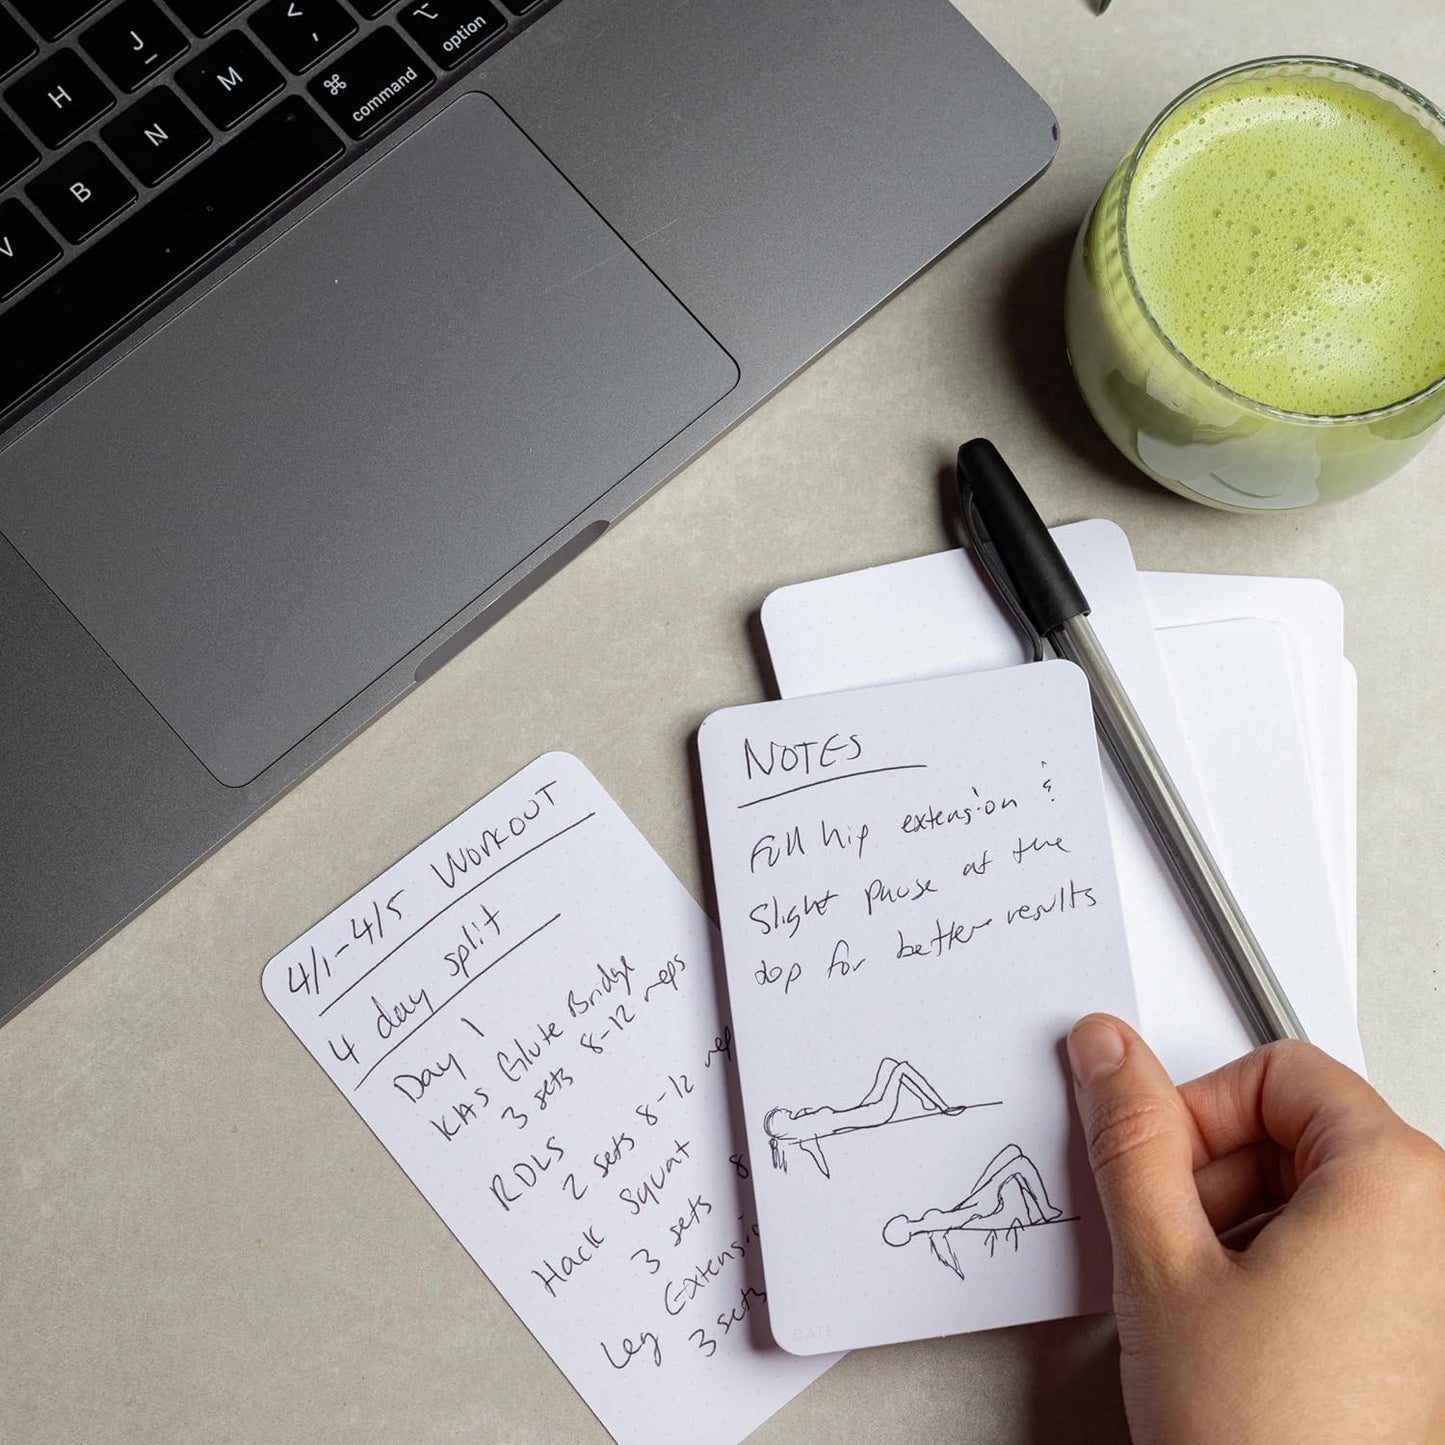 J
<
,
⌥
option
H
M
⌘
command
N
B
V
4/1-4/5 WORKOUT
4 day split
Day 1
KAS Glute Bridge
3 sets 8-12 reps
RDLS
2 sets 8-12 rep
Hack Squat
3 sets 8
Leg Extensio
3 sets
NOTES
Full hip extension &
Slight pause at the
top for better results
DATE